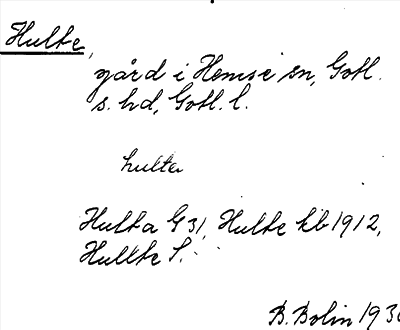 Hulte,
gård i Hemse sn, Gotl.
s. hd, Gotl. l.
hulte
Hulta G 31, Hulte kb 1912,
Hullte S.
B. Bolin 193